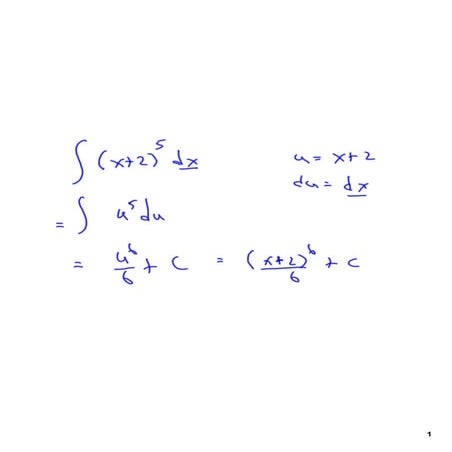 ∫ (x+2)⁵ dx
u = x+2
du = dx
= ∫ u⁵ du
= u⁶/6 + C = (x+2)⁶/6 + C
1